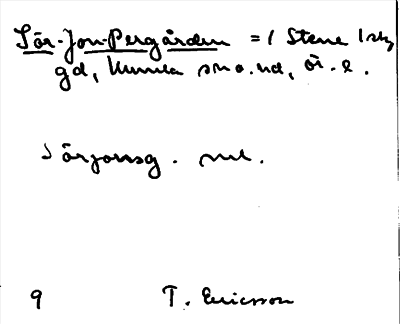 Sör-Jon-Pergården = 1 Stene 1sk,
gd, Kumla sn o. hd, Ör. l.
Sörjonsg. ml.
9 T. Ericsson